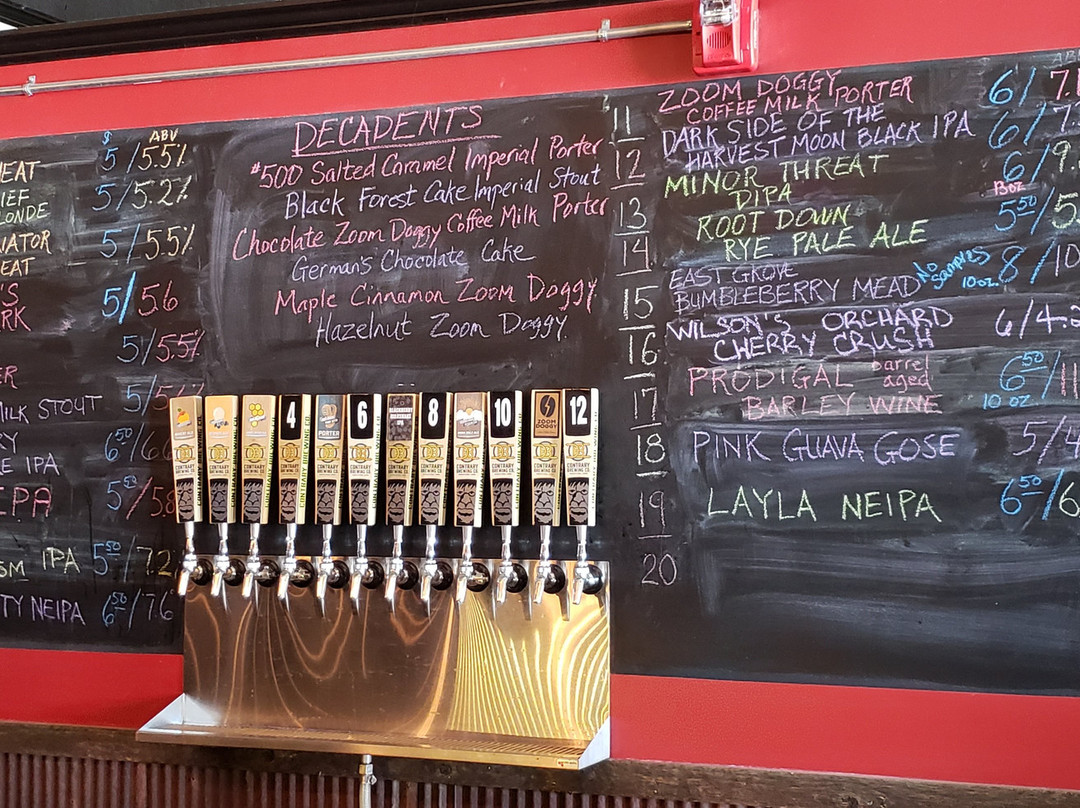 $ ABV
EAT 5/5.5%
IEF
LONDE 5/5.2%
NATOR
EAT 5/5.5%
'S
RK 5/5.6
5/5.5%
ER
MILK STOUT 5/5
RY
E IPA 6 50/6
EPA 5 50/5.8
SM IPA 5 50/7.2
TY NEIPA 6 50/7.6
DECADENTS
#500 Salted Caramel Imperial Porter
Black Forest Cake Imperial Stout
Chocolate Zoom Doggy Coffee Milk Porter
German's Chocolate Cake
Maple Cinnamon Zoom Doggy
Hazelnut Zoom Doggy
11 ZOOM DOGGY
COFFEE MILK PORTER 6/7.1
12 DARK SIDE OF THE
HARVEST MOON BLACK IPA 6/7.
13 MINOR THREAT
DIPA 6/9.
13oz
14 ROOT DOWN
RYE PALE ALE 5 50/5
15 EAST GROVE
BUMBLEBERRY MEAD NO Samples 10oz 8/10
16 WILSON'S ORCHARD
CHERRY CRUSH 6/4.2
17 PRODIGAL barrel aged
BARLEY WINE 6 50/11
10 oz
18 PINK GUAVA GOSE 5/4
19 LAYLA NEIPA 6 50/6
20
4 6 8 10 12
PORTER
ZOOM DOGGY
CONTRARY BREWING CO.
CONTRARY BREWING CO.
CONTRARY BREWING CO.
CONTRARY BREWING CO.
CONTRARY BREWING CO.
CONTRARY BREWING CO.
CONTRARY BREWING CO.
CONTRARY BREWING CO.
CONTRARY BREWING CO.
CONTRARY BREWING CO.
CONTRARY BREWING CO.
CONTRARY BREWING CO.